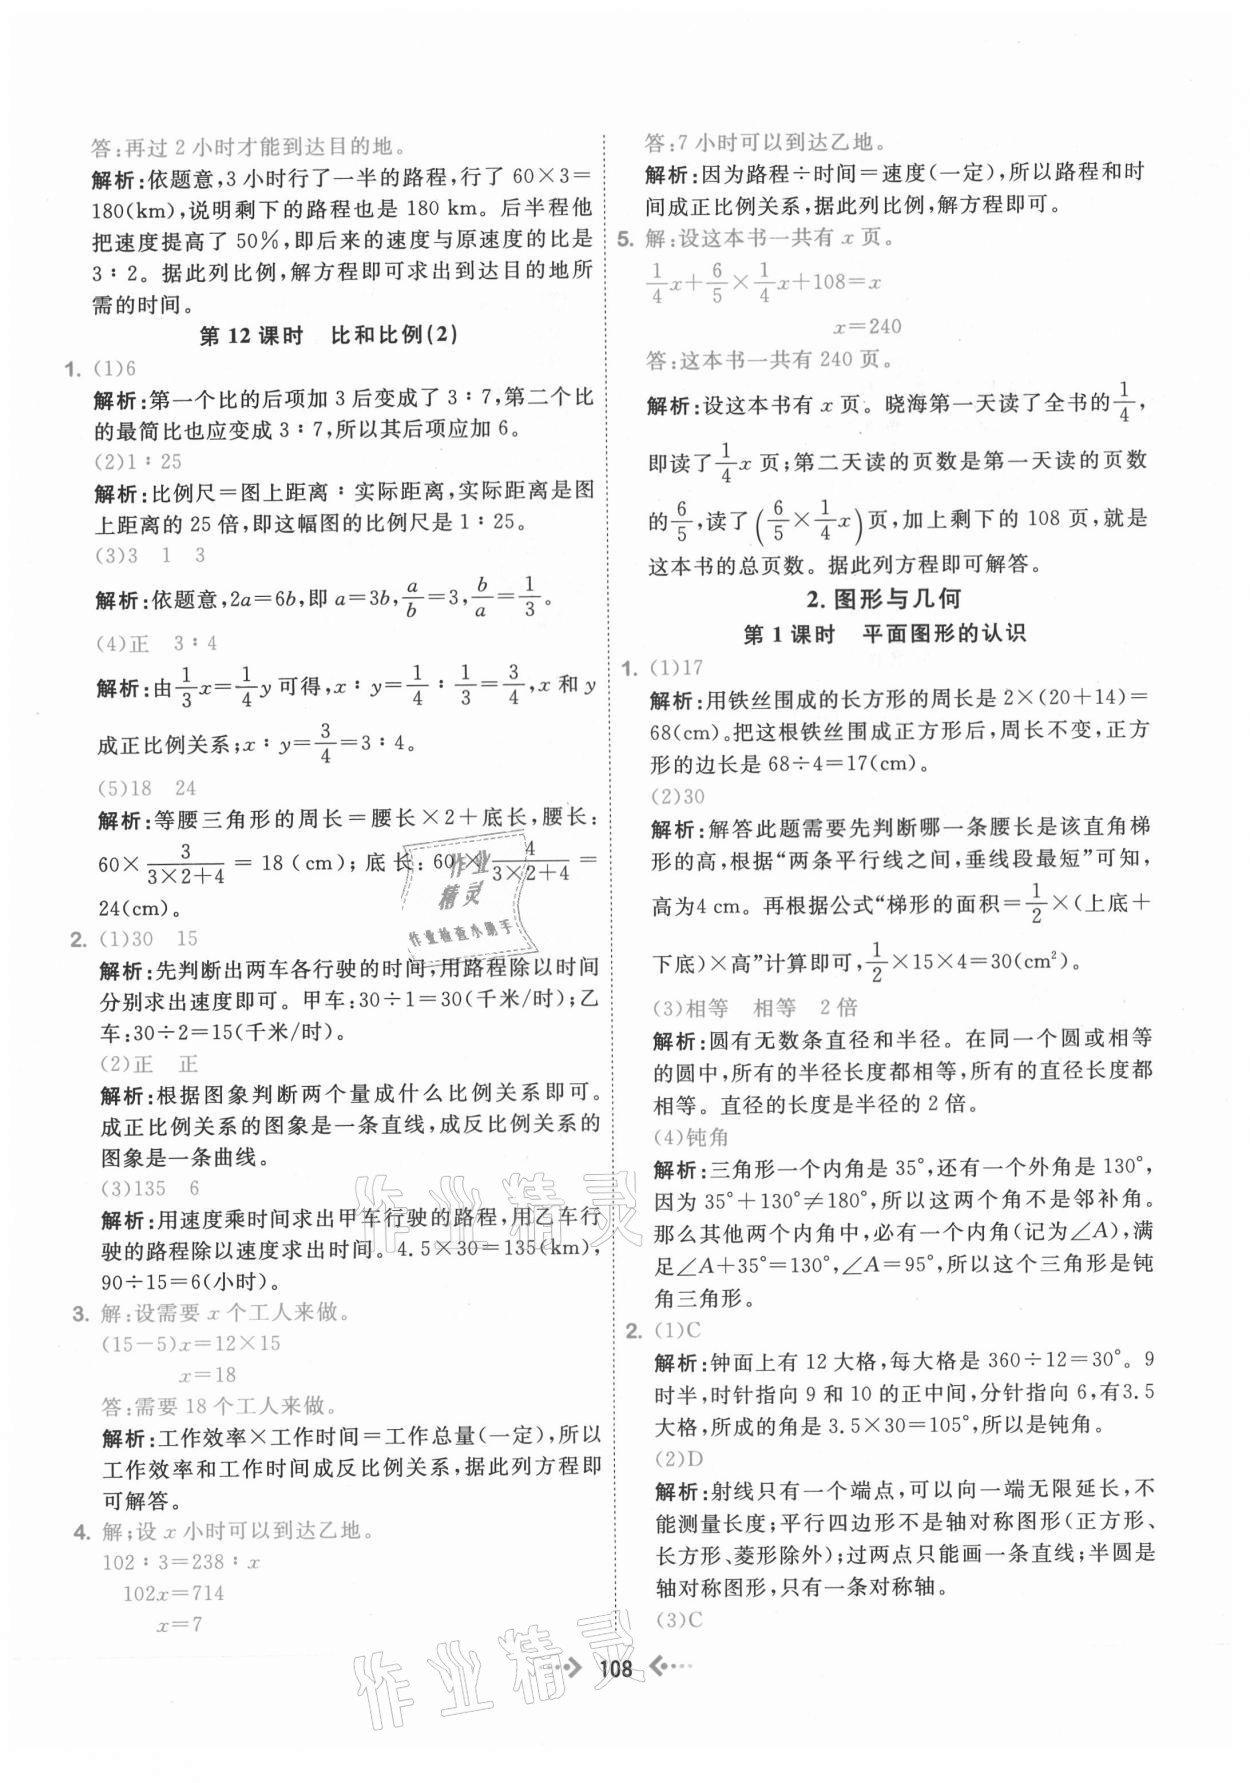 答:再过 2 小时才能到达目的地。
解析:依题意,3 小时行了一半的路程,行了 60×3=
180(km),说明剩下的路程也是 180 km。后半程他
把速度提高了 50%,即后来的速度与原速度的比是
3∶2。据此列比例,解方程即可求出到达目的地所
需的时间。
第 12 课时 比和比例(2)
1. (1)6
解析:第一个比的后项加 3 后变成了 3∶7,第二个比
的最简比也应变成 3∶7,所以其后项应加 6。
(2)1∶25
解析:比例尺=图上距离∶实际距离,实际距离是图
上距离的 25 倍,即这幅图的比例尺是 1∶25。
(3)3 1 3
解析:依题意,2a=6b,即 a=3b,a/b=3,b/a=1/3。
(4)正 3∶4
解析:由1/3x=1/4y 可得,x∶y=1/4∶1/3=3/4,x 和 y
成正比例关系;x∶y=3/4=3∶4。
(5)18 24
解析:等腰三角形的周长=腰长×2+底长,腰长:
60×3/(3×2+4)=18(cm);底长:60×4/(3×2+4)=
24(cm)。
2. (1)30 15
解析:先判断出两车各行驶的时间,用路程除以时间
分别求出速度即可。甲车:30÷1=30(千米/时);乙
车:30÷2=15(千米/时)。
(2)正 正
解析:根据图象判断两个量成什么比例关系即可。
成正比例关系的图象是一条直线,成反比例关系的
图象是一条曲线。
(3)135 6
解析:用速度乘时间求出甲车行驶的路程,用乙车行
驶的路程除以速度求出时间。4.5×30=135(km),
90÷15=6(小时)。
3. 解:设需要 x 个工人来做。
(15-5)x=12×15
x=18
答:需要 18 个工人来做。
解析:工作效率×工作时间=工作总量(一定),所以
工作效率和工作时间成反比例关系,据此列方程即
可解答。
4. 解;设 x 小时可以到达乙地。
102∶3=238∶x
102x=714
x=7
答:7 小时可以到达乙地。
解析:因为路程÷时间=速度(一定),所以路程和时
间成正比例关系,据此列比例,解方程即可。
5. 解:设这本书一共有 x 页。
1/4x+6/5×1/4x+108=x
x=240
答:这本书一共有 240 页。
解析:设这本书有 x 页。晓海第一天读了全书的1/4,
即读了1/4x 页;第二天读的页数是第一天读的页数
的6/5,读了(6/5×1/4x)页,加上剩下的 108 页,就是
这本书的总页数。据此列方程即可解答。
2. 图形与几何
第 1 课时 平面图形的认识
1. (1)17
解析:用铁丝围成的长方形的周长是 2×(20+14)=
68(cm)。把这根铁丝围成正方形后,周长不变,正方
形的边长是 68÷4=17(cm)。
(2)30
解析:解答此题需要先判断哪一条腰长是该直角梯
形的高,根据“两条平行线之间,垂线段最短”可知,
高为4 cm。再根据公式“梯形的面积=1/2×(上底+
下底)×高”计算即可,1/2×15×4=30(cm²)。
(3)相等 相等 2 倍
解析:圆有无数条直径和半径。在同一个圆或相等
的圆中,所有的半径长度都相等,所有的直径长度都
相等。直径的长度是半径的 2 倍。
(4)钝角
解析:三角形一个内角是 35°,还有一个外角是 130°,
因为 35°+130°≠180°,所以这两个角不是邻补角。
那么其他两个内角中,必有一个内角(记为∠A),满
足∠A+35°=130°,∠A=95°,所以这个三角形是钝
角三角形。
2. (1)C
解析:钟面上有 12 大格,每大格是 360÷12=30°。9
时半,时针指向 9 和 10 的正中间,分针指向 6,有3.5
大格,所成的角是 3.5×30=105°,所以是钝角。
(2)D
解析:射线只有一个端点,可以向一端无限延长,不
能测量长度;平行四边形不是轴对称图形(正方形、
长方形、菱形除外);过两点只能画一条直线;半圆是
轴对称图形,只有一条对称轴。
(3)C
108
作业
精灵
作业检查小助手
作业精灵
作业精灵